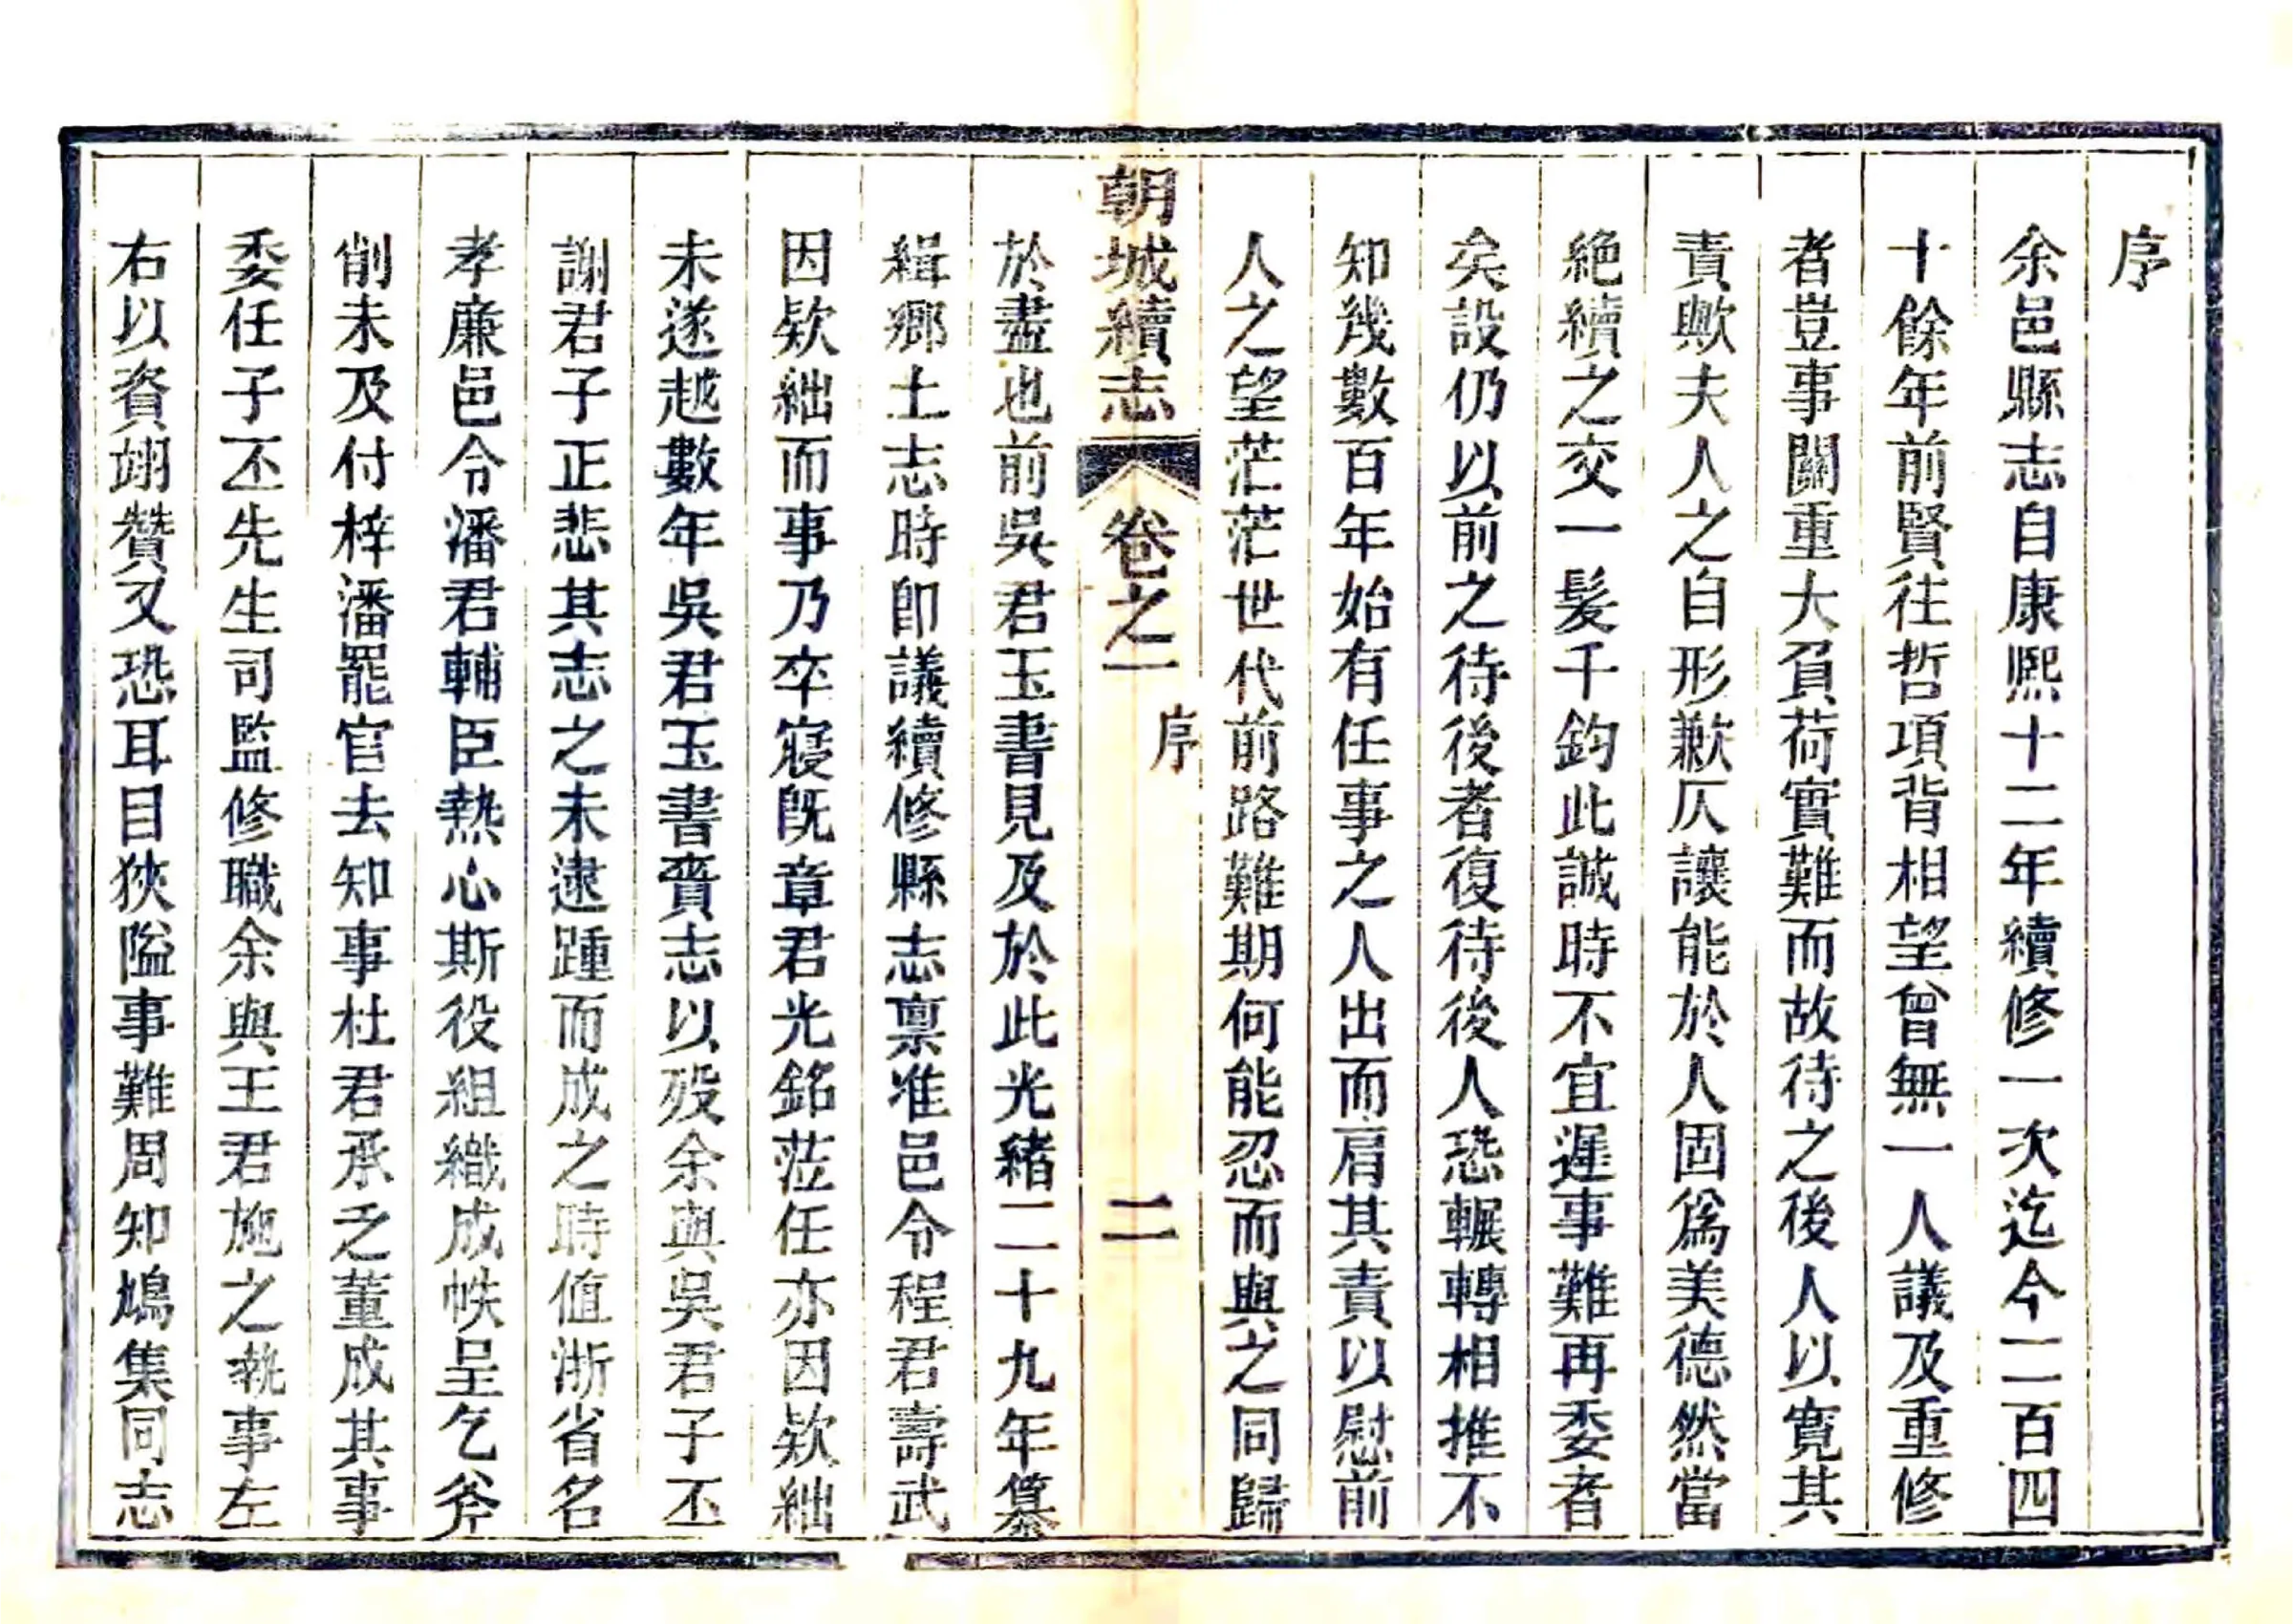 序
余邑縣志自康熙十二年續修一次迄今二百四
十餘年前賢往哲項背相望曾無一人議及重修
者豈事關重大負荷實難而故待之後人以寬其
責歟夫人之自形歉仄讓能於人固爲美德然當
絶續之交一髮千鈞此誠時不宜遲事難再委者
矣設仍以前之待後者復待後人恐輾轉相推不
知幾數百年始有任事之人出而肩其責以慰前
人之望茫茫世代前路難期何能忍而與之同歸
朝城續志
卷之一
序
二
於盡也前吳君玉書見及於此光緒二十九年纂
緝鄉土志時即議續修縣志禀准邑令程君壽武
因欵絀而事乃卒寢旣章君光銘蒞任亦因欵絀
未遂越數年吳君玉書賫志以歿余與吳君子丕
謝君子正悲其志之未逮踵而成之時値浙省名
孝廉邑令潘君輔臣熱心斯役組織成帙呈乞斧
削未及付梓潘罷官去知事杜君承之董成其事
委任子丕先生司監修職余與王君施之執事左
右以資翊贊又恐耳目狹隘事難周知鳩集同志